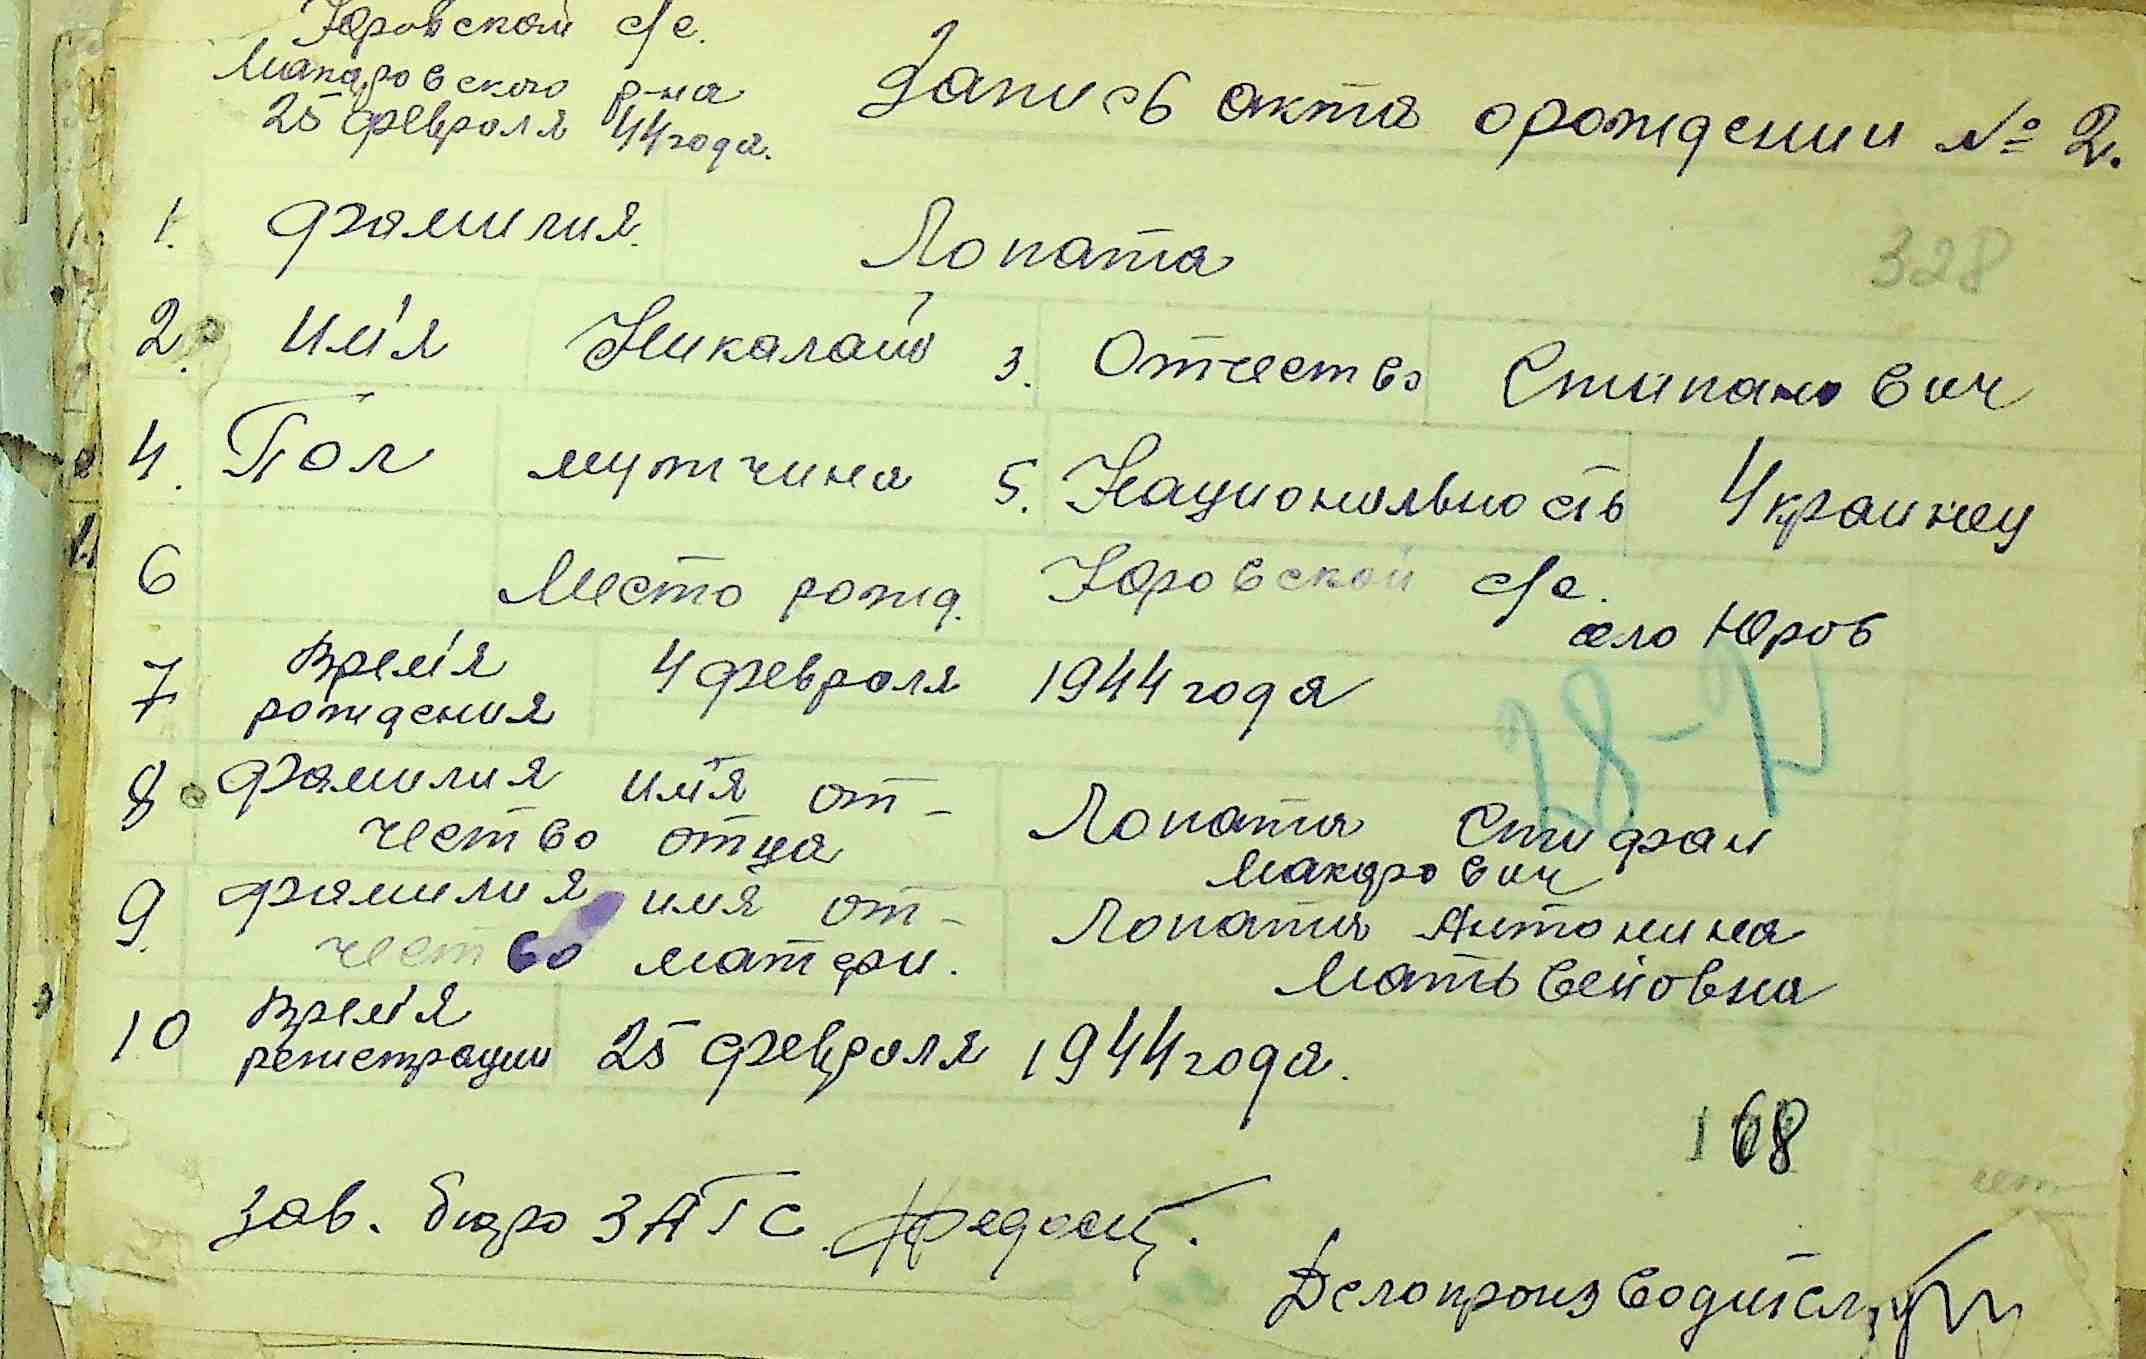 Юровской с/с.
Макаровского р-на
25 февраля 44 года.
Запись акта о рождении № 2.
1. Фамилия. Лопата
328
2. Им'я Никалай 3. Отчество Стипанович
4. Пол мутчина 5. Национольность Украинец
6 Место рожд. Юровской с/с.
село Юров
7 Врем'я рождения 4 февроля 1944 года
28-2
8 Фамилия им'я от-
чество отца
Лопата Стифан
Макарович
9. Фамилия имя от-
чество матери.
Лопата Антонина
Матьвейовна
10 Врем'я регистрации 25 февроля 1944 года.
168
зав. бюро ЗАГС
Делопроизводитель